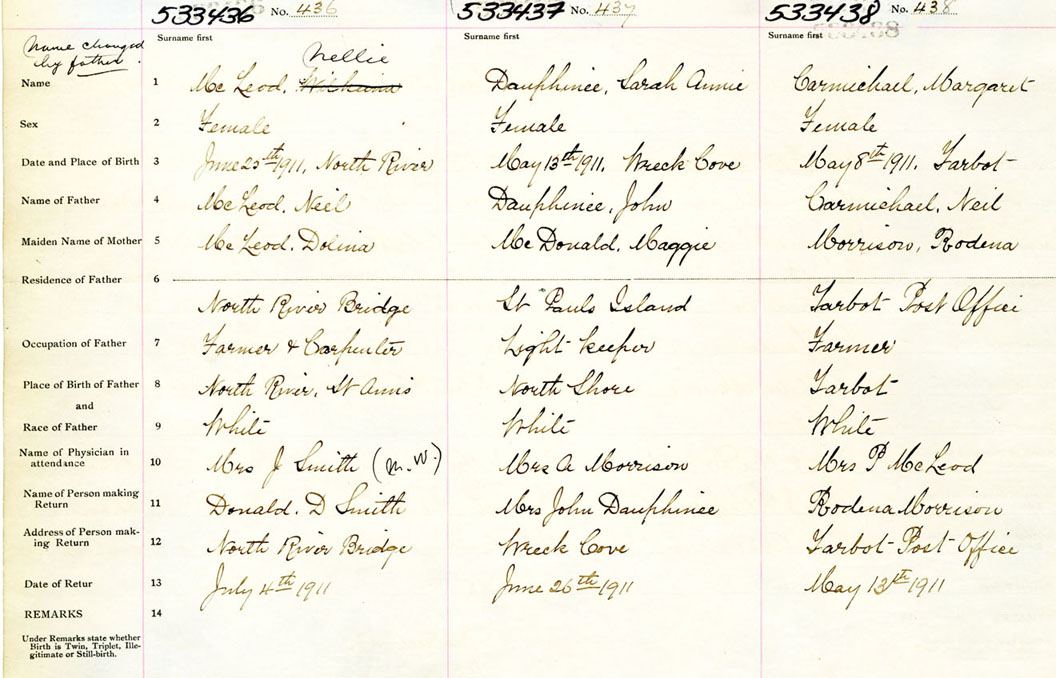 533436 No. 436 533437 No. 437 533438 No. 438
Name changed by father.
Surname first Surname first Surname first
Nellie
Name 1 McLeod, Dauphinee, Sarah Annie Carmichael, Margaret
Sex 2 Female Female Female
Date and Place of Birth 3 June 25th 1911, North River May 13th 1911. Wreck Cove May 8th 1911. Tarbot
Name of Father 4 McLeod, Neil Dauphinee, John Carmichael, Neil
Maiden Name of Mother 5 McLeod. Dolina McDonald. Maggie Morrison, Rodena
Residence of Father 6
North River Bridge St Pauls Island Tarbot Post Office
Occupation of Father 7 Farmer & Carpenter Light keeper Farmer
Place of Birth of Father 8 North River, St Anns North Shore Tarbot
and
Race of Father 9 White White White
Name of Physician in
attendance 10 Mrs J Smith (M.W.) Mrs A Morrison Mrs P McLeod
Name of Person making
Return 11 Donald. D Smith Mrs John Dauphinee Rodena Morrison
Address of Person mak-
ing Return 12 North River Bridge Wreck Cove Tarbot Post Office
Date of Retur 13 July 4th 1911 June 26th 1911 May 13th 1911
REMARKS 14
Under Remarks state whether
Birth is Twin, Triplet, Ille-
gitimate or Still-birth.